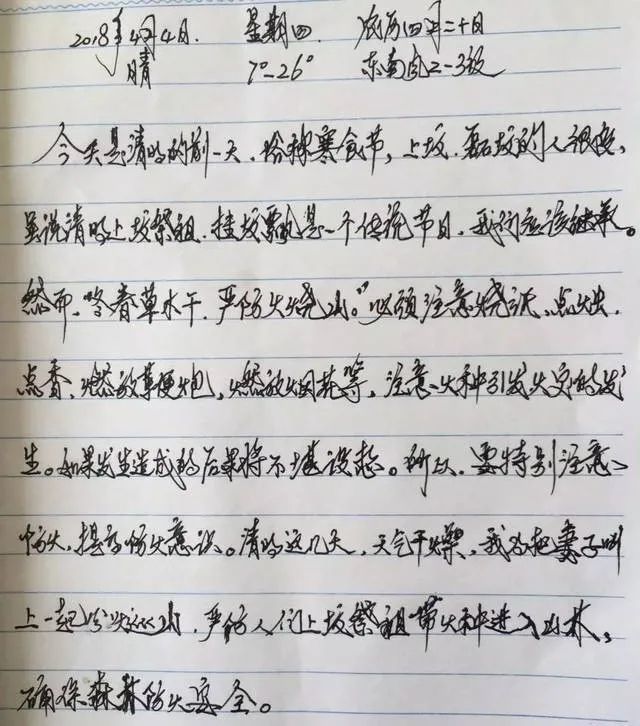 2018年4月4日. 星期四 农历四月二十日
晴 7°-26° 东南风2-3级
今天是清明的前一天，俗称寒食节，上坟、的人很多，
虽说清明上坟祭祖.挂坟飘是一个传说节目.我们应该继承。
然而，冬春草木干.严防火烧山。"必须注意烧纸、点烛，
点香，燃放草便炮，燃放烟花等，注意火种引发火灾的发
生。如果发生造成的后果将不堪设想。所以.要特别注意
防火，提高防火意识。清明这几天，天气干燥，我把妻子叫
上一起山.严防人们上坟祭祖带火种进入山林，
确保森林防火安全。